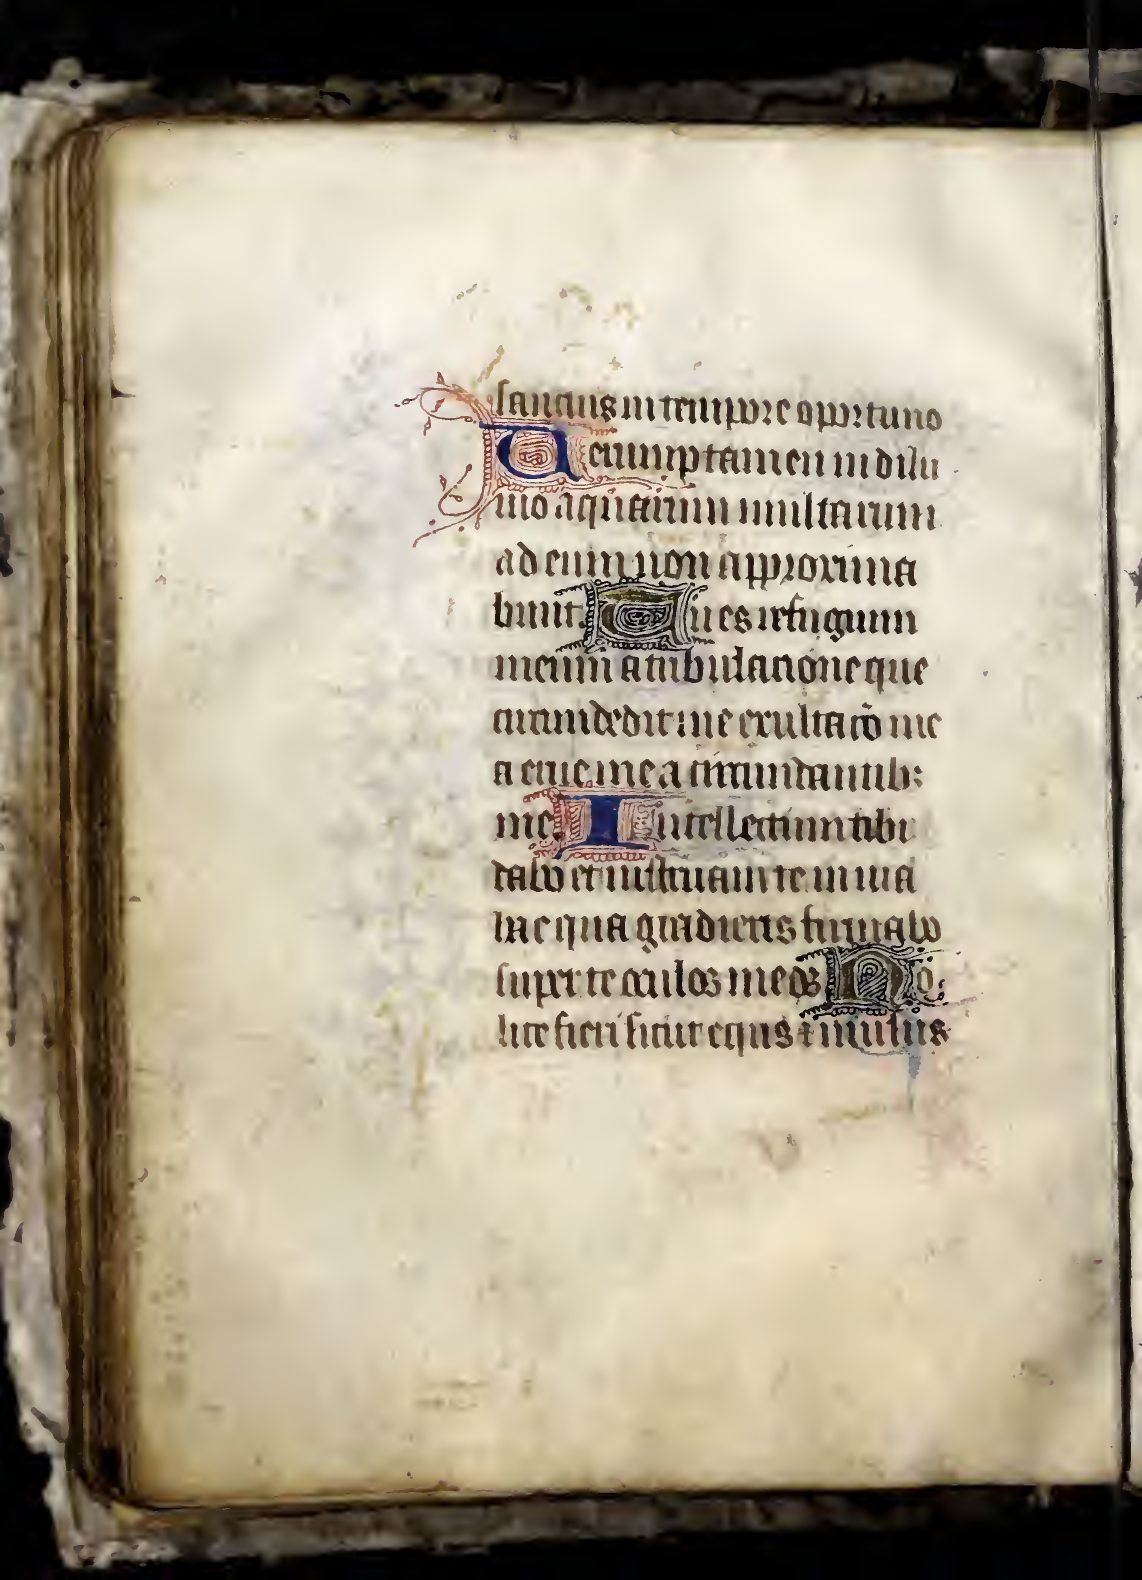 sanctus in tempore oportuno
Uerumptamen in dilu
uio aquarum multarum
ad eum non approxima
bunt. Tu es refugium
meum a tribulatione que
circumdedit me exultatō me
a erue me a circumdantib;
me. Intellectum tibi
dabo et instruam te in uia
hac qua gradieris firmabo
super te oculos meos No
lite fieri sicut equus ⁊ mulus